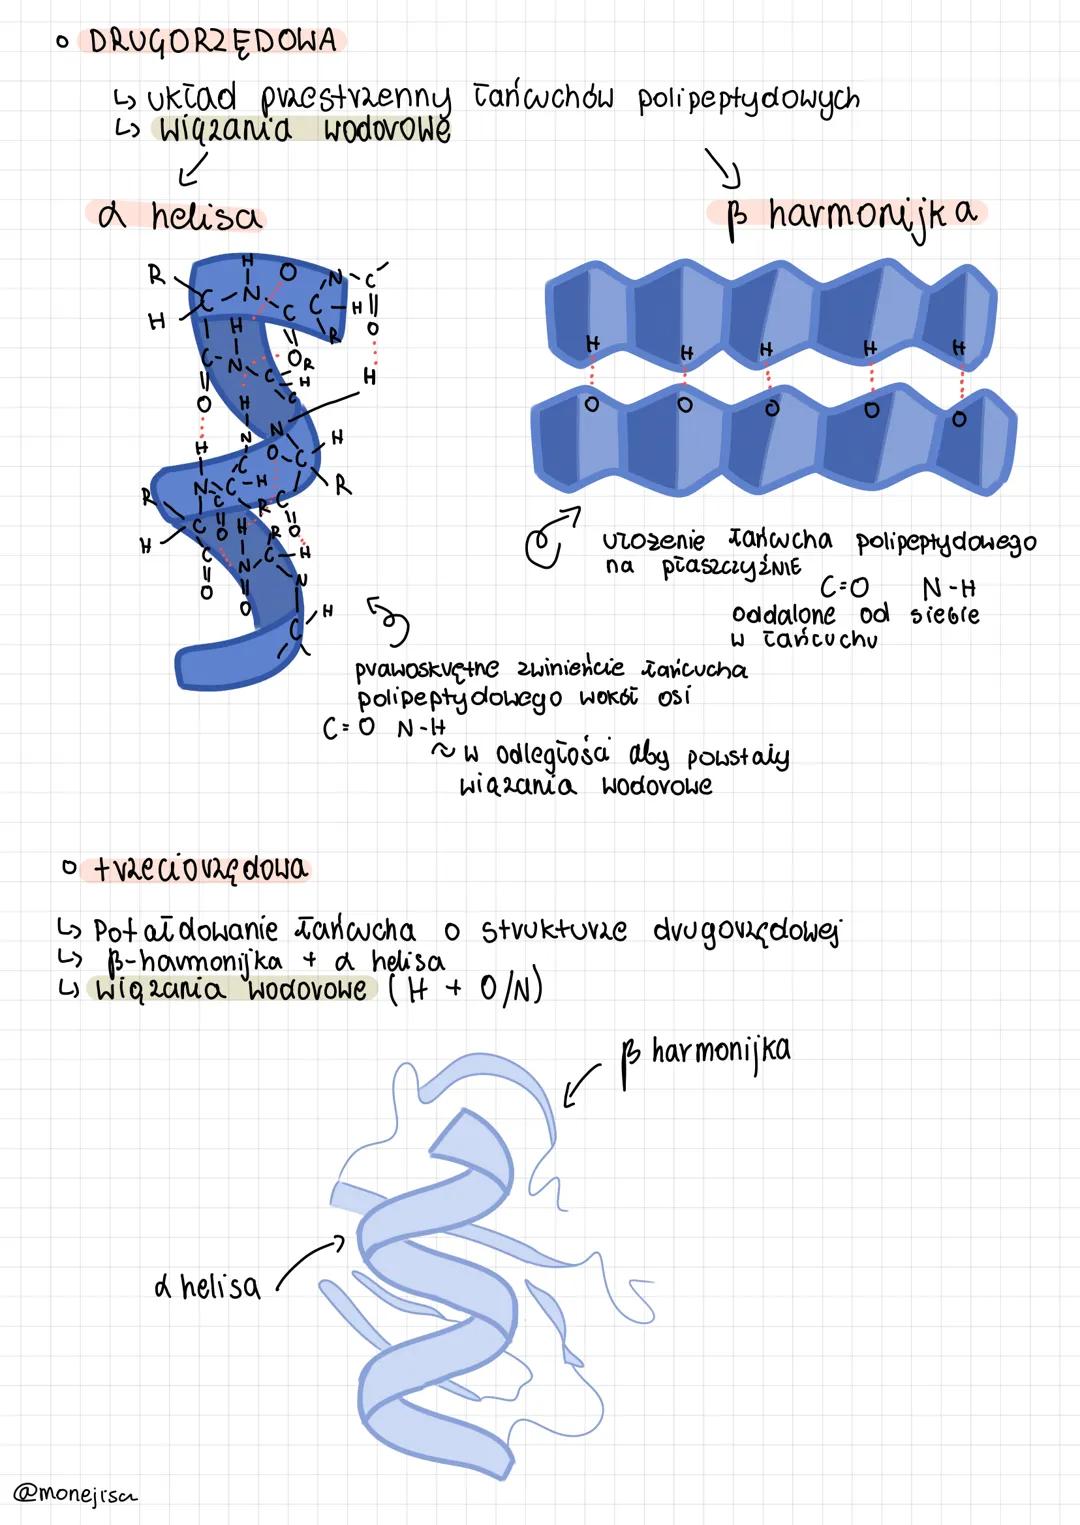 DRUGORZĘDOWA
↳ układ przestrzenny łańcuchów polipeptydowych
↳ wiązania wodorowe
α helisa
β harmonijka
R
H
C
N
H
O
C
C
N
C
H
R
O
H
H
N
C
O
C
N
C
O
R
H
C
H
N
H
H
H
H
H
O
O
O
O
O
N
O
C
H
R
R
H
N
C
H
C
O
H
R
C
O
R
C
H
N
C
O
N
O
C
H
ułożenie łańcucha polipeptydowego
na płaszczyźNIE
C=O N-H
oddalone od siebie
w łańcuchu
prawoskrętne zwinieńcie łańcucha
polipeptydowego wokół osi
C=O N-H
~ w odległości aby powstały
wiązania wodorowe
trzeciorzędowa
↳ Pofałdowanie łańcucha o strukturze drugorzędowej
↳ β-harmonijka + α helisa
↳ wiązania wodorowe (H + O/N)
β harmonijka
α helisa
@monejisa